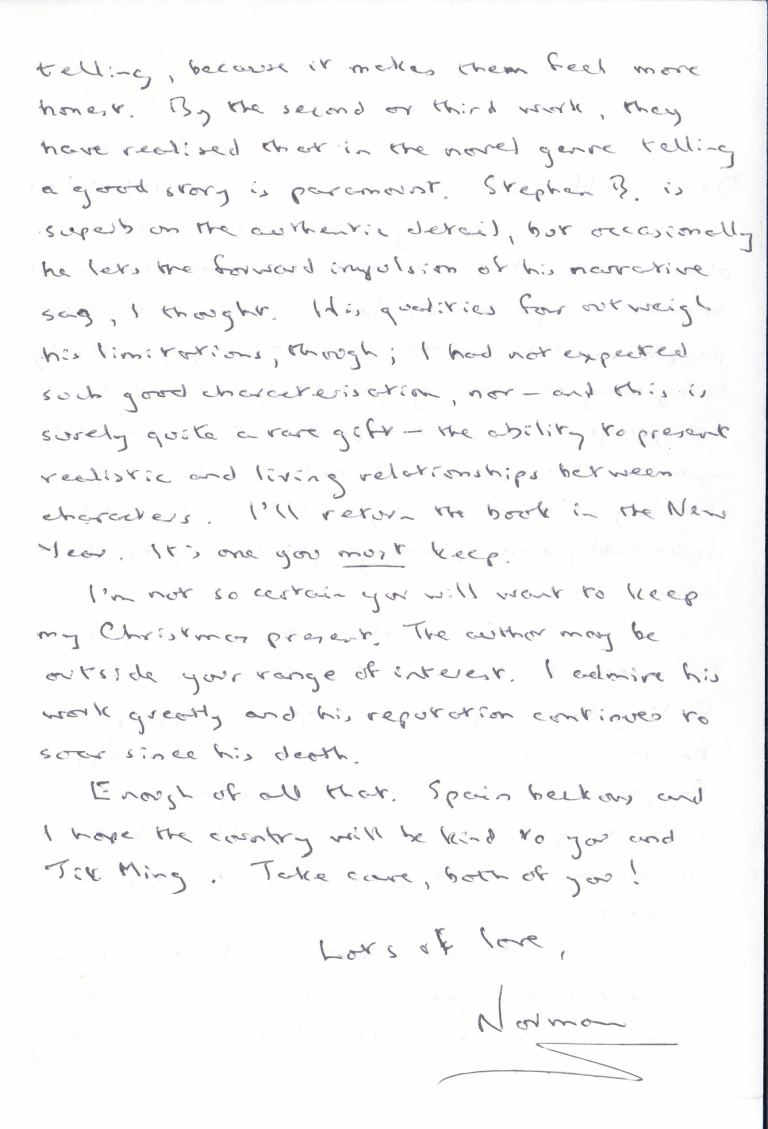 telling, because it makes them feel more
honest. By the second or third work, they
have realised that in the novel genre telling
a good story is paramount. Stephen B. is
superb on the authentic detail, but occasionally
he lets the forward impulsion of his narrative
sag, I thought. His qualities far outweigh
his limitations, though; I had not expected
such good characterisation, nor – and this is
surely quite a rare gift – the ability to present
realistic and living relationships between
characters. I'll return the book in the New
Year. It's one you must keep.
I'm not so certain you will want to keep
my Christmas present. The author may be
outside your range of interest. I admire his
work greatly and his reputation continues to
soar since his death.
Enough of all that. Spain beckons and
I hope the country will be kind to you and
Ming. Take care, both of you!
Lots of love,
Norman